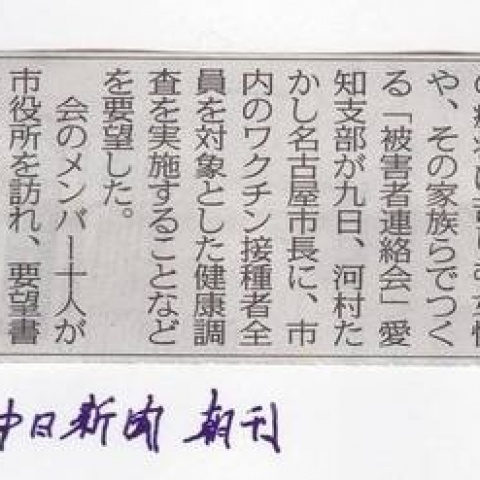 や、その家族らでつく
る「被害者連絡会」愛
知支部が九日、河村た
かし名古屋市長に、市
内のワクチン接種者全
員を対象とした健康調
査を実施することなど
を要望した。
会のメンバー十人が
市役所を訪れ、要望書
中日新聞 朝刊